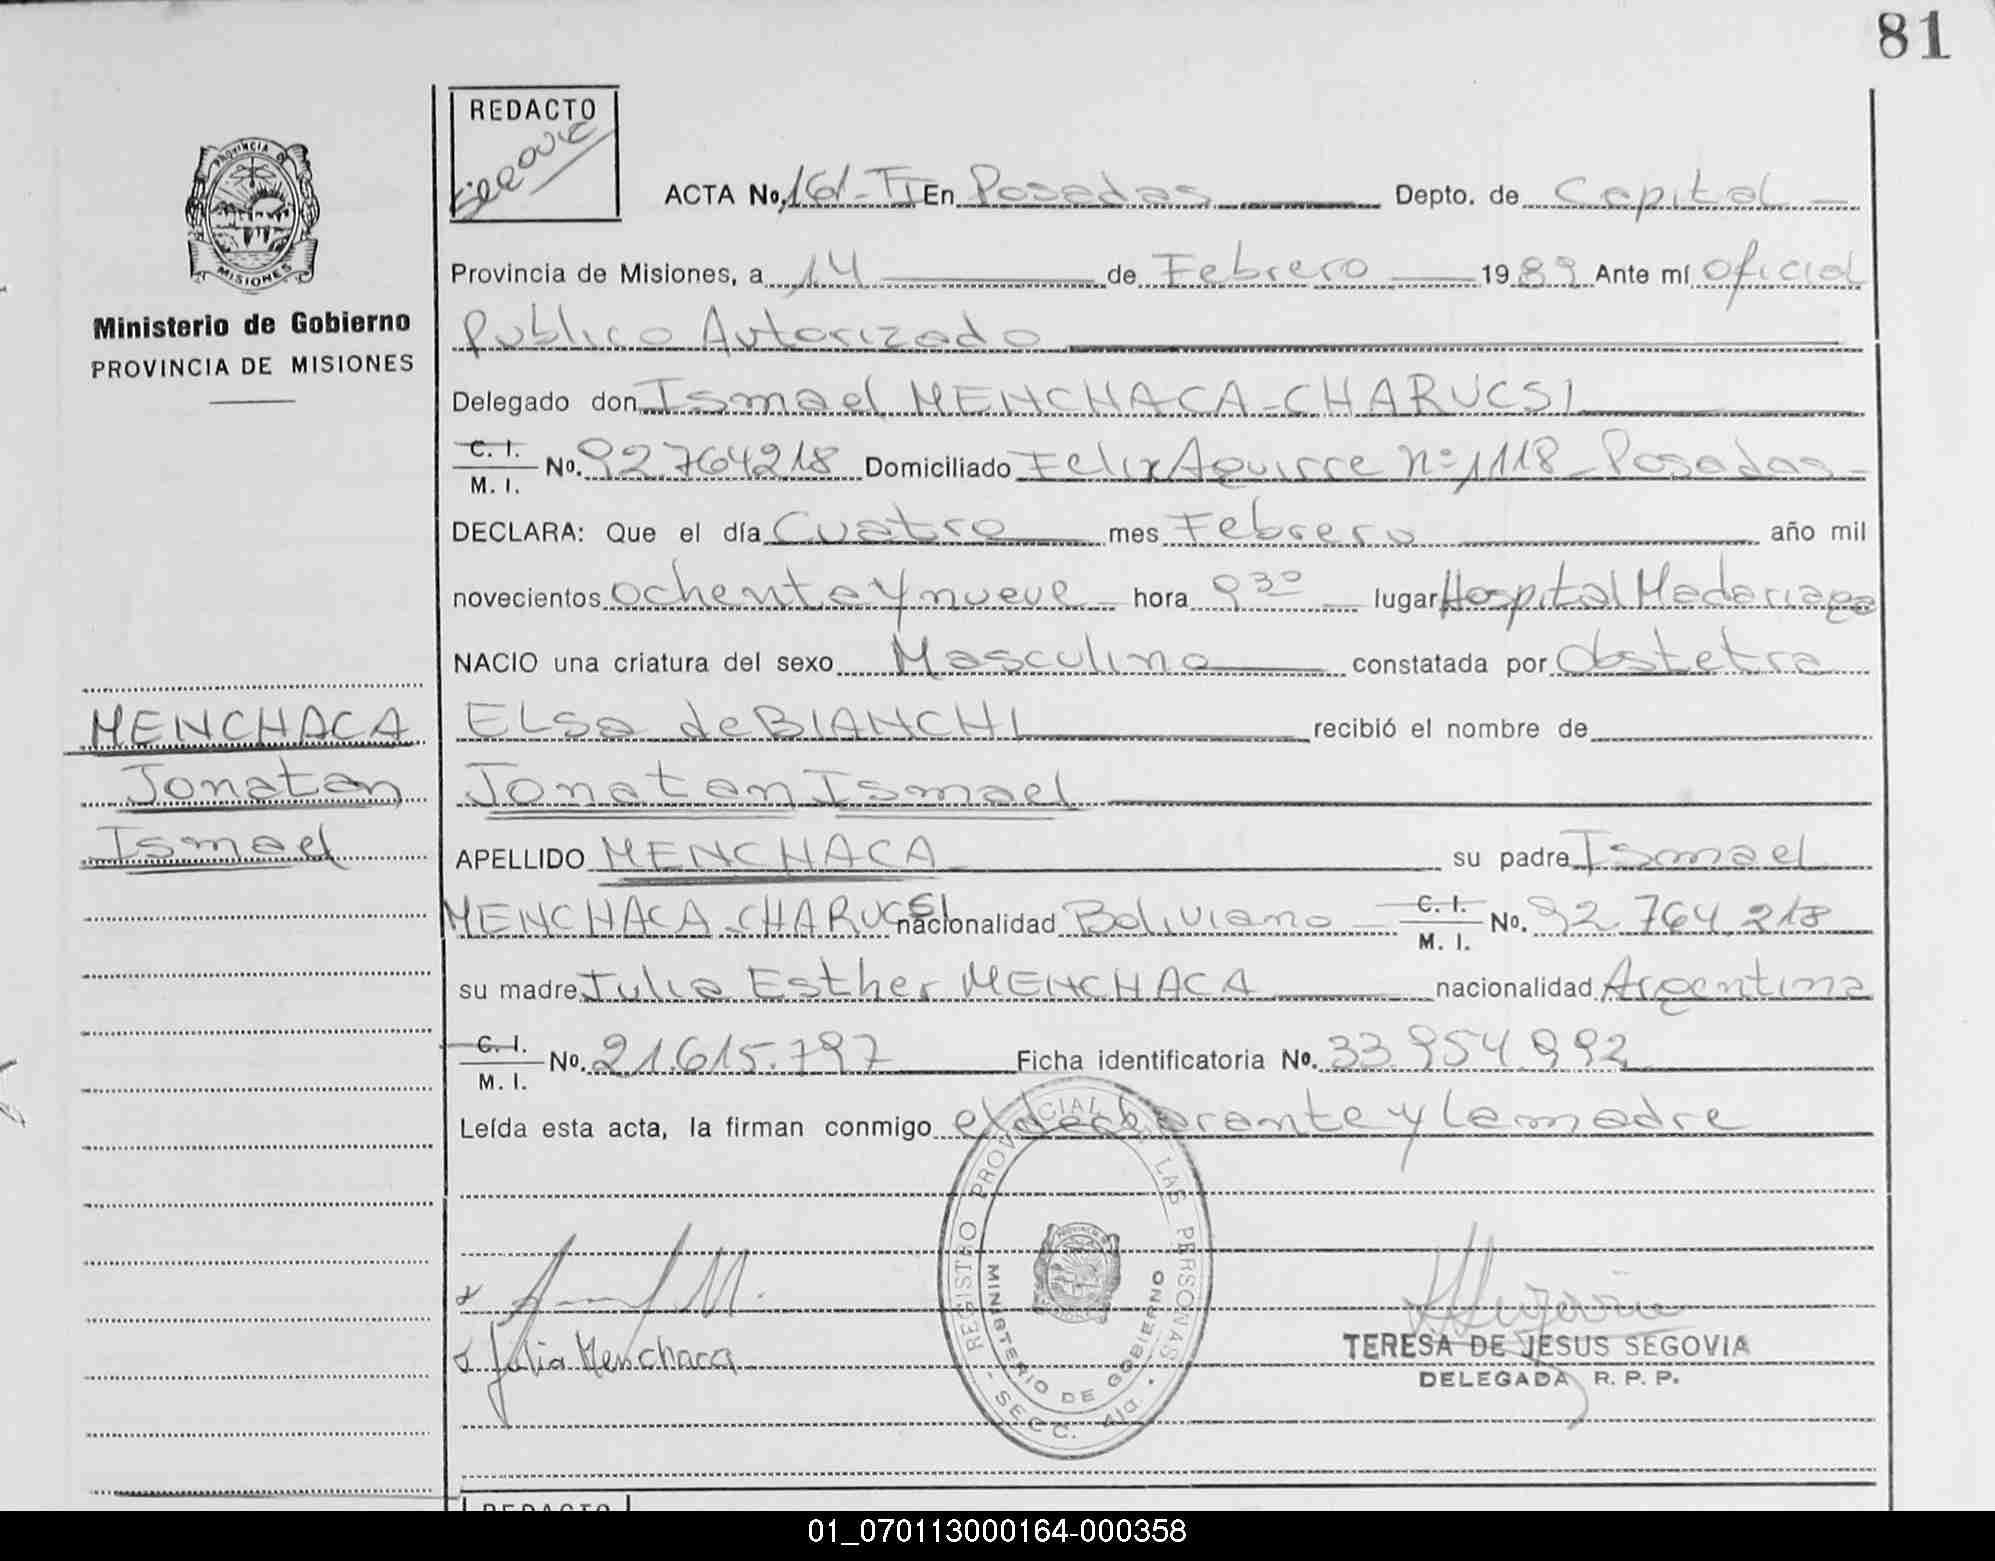 81
REDACTO
Segovia
PROVINCIA DE
MISIONES
Ministerio de Gobierno
PROVINCIA DE MISIONES
ACTA No. 161-TI En Posadas Depto. de Capital
Provincia de Misiones, a 14 de Febrero 1989 Ante mí oficial
Publico Autorizado
Delegado don Ismael MENCHACA-CHARUCSI
C. I. M. I. No. 92.764218 Domiciliado Felix Aguirre nº 1118 - Posadas -
DECLARA: Que el día Cuatro mes Febrero año mil
novecientos ochenta y nueve hora 9 30 lugar Hospital Madariaga
NACIO una criatura del sexo Masculino constatada por Obstetra
ELSa de BIANCHI recibió el nombre de
Jonatan Ismael
APELLIDO MENCHACA su padre Ismael
MENCHACA-CHARUCSI nacionalidad Boliviano C. I. M. I. No. 92.764.218
su madre Julia Esther MENCHACA nacionalidad Argentina
C. I. M. I. No. 21.615.797 Ficha identificatoria No. 33.954.992
Leída esta acta, la firman conmigo el declarante y la madre
MENCHACA
Jonatan
Ismael
Julia Menchaca
REGISTRO PROVINCIAL LAS PERSONAS
MINISTERIO DE GOBIERNO
SECC. 4ta.
TERESA DE JESUS SEGOVIA
DELEGADA R. P. P.
REDACTO
01_070113000164-000358